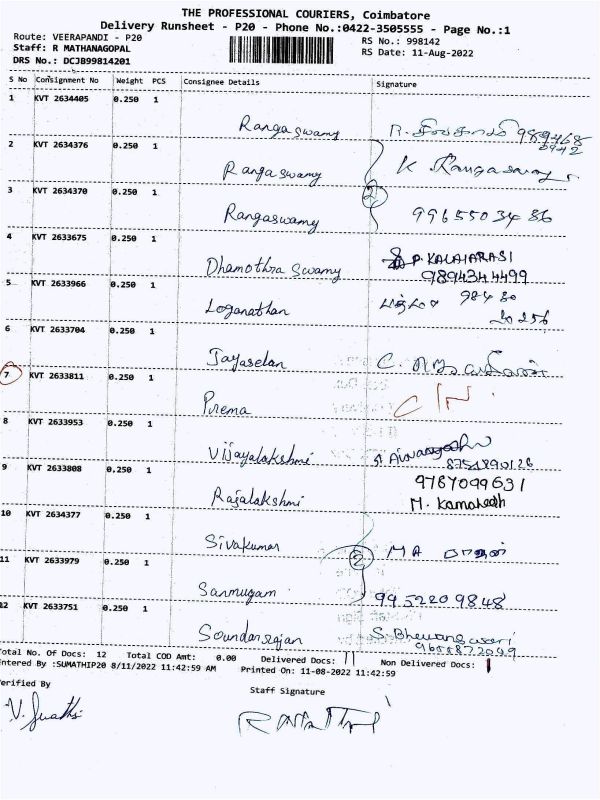 THE PROFESSIONAL COURIERS, Coimbatore
Delivery Runsheet - P20 - Phone No.:0422-3505555 - Page No.:1
Route: VEERAPANDI - P20
RS No.: 998142
Staff: R MATHANAGOPAL
RS Date: 11-Aug-2022
DRS No.: DCJB99814201
S No Consignment No Weight PCS Consignee Details Signature
1 KVT 2634405 0.250 1
Rangaswamy R.
2 KVT 2634376 0.250 1
Rangaswamy K Rangaswamy
3 KVT 2634370 0.250 1
2
Rangaswamy 9965503486
4 KVT 2633675 0.250 1
P. KALAIARASI
Dhamothra swamy 9894344499
5 KVT 2633966 0.250 1
Loganathan 98430
20256
6 KVT 2633704 0.250 1
Jayaselan C.
7 KVT 2633811 0.250 1
Prema C/N.
8 KVT 2633953 0.250 1
Vijayalakshmi
8754890126
9 KVT 2633808 0.250 1
9787099631
Rajalakshmi M. Kamalesh
10 KVT 2634377 0.250 1
Sivakumar MA
11 KVT 2633979 0.250 1
2
Sanmugam 9952209848
12 KVT 2633751 0.250 1
Soundarrajan S. Bhuvaneswari
Total No. Of Docs: 12 Total COD Amt: 0.00 Delivered Docs: 11 Non Delivered Docs: 1
Entered By :SUMATHIP20 8/11/2022 11:42:59 AM Printed On: 11-08-2022 11:42:59
Verified By
Staff Signature